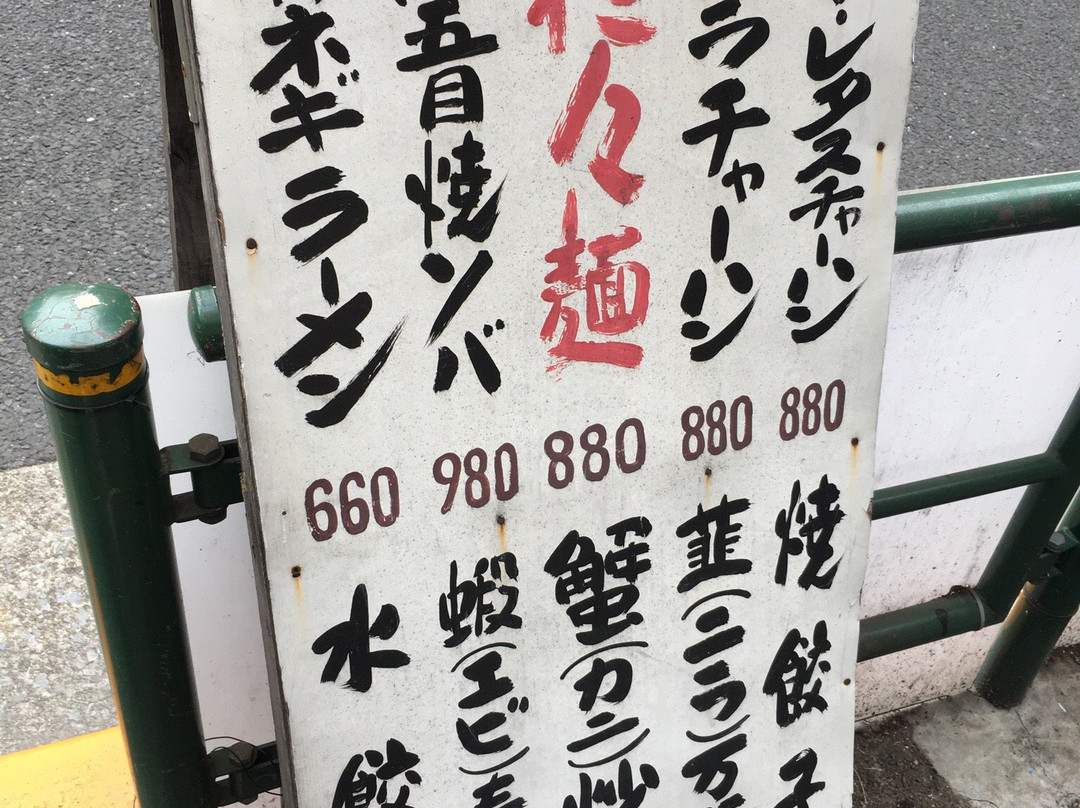 レタスチャーハン
880
ラチャーハン
880
々麺
880
五目焼ソバ
980
ネギラーメン
660
焼餃子
韮(ニラ)万
蟹(カニ)炒
蝦(エビ)
水餃